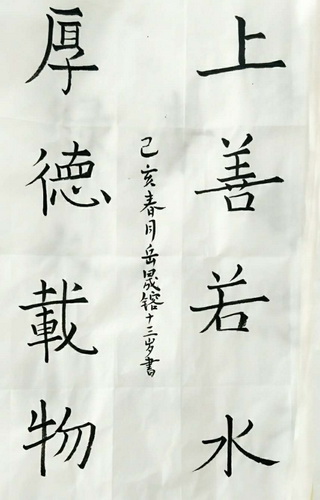 上善若水
厚德載物
己亥春月岳晟鎔十三岁書